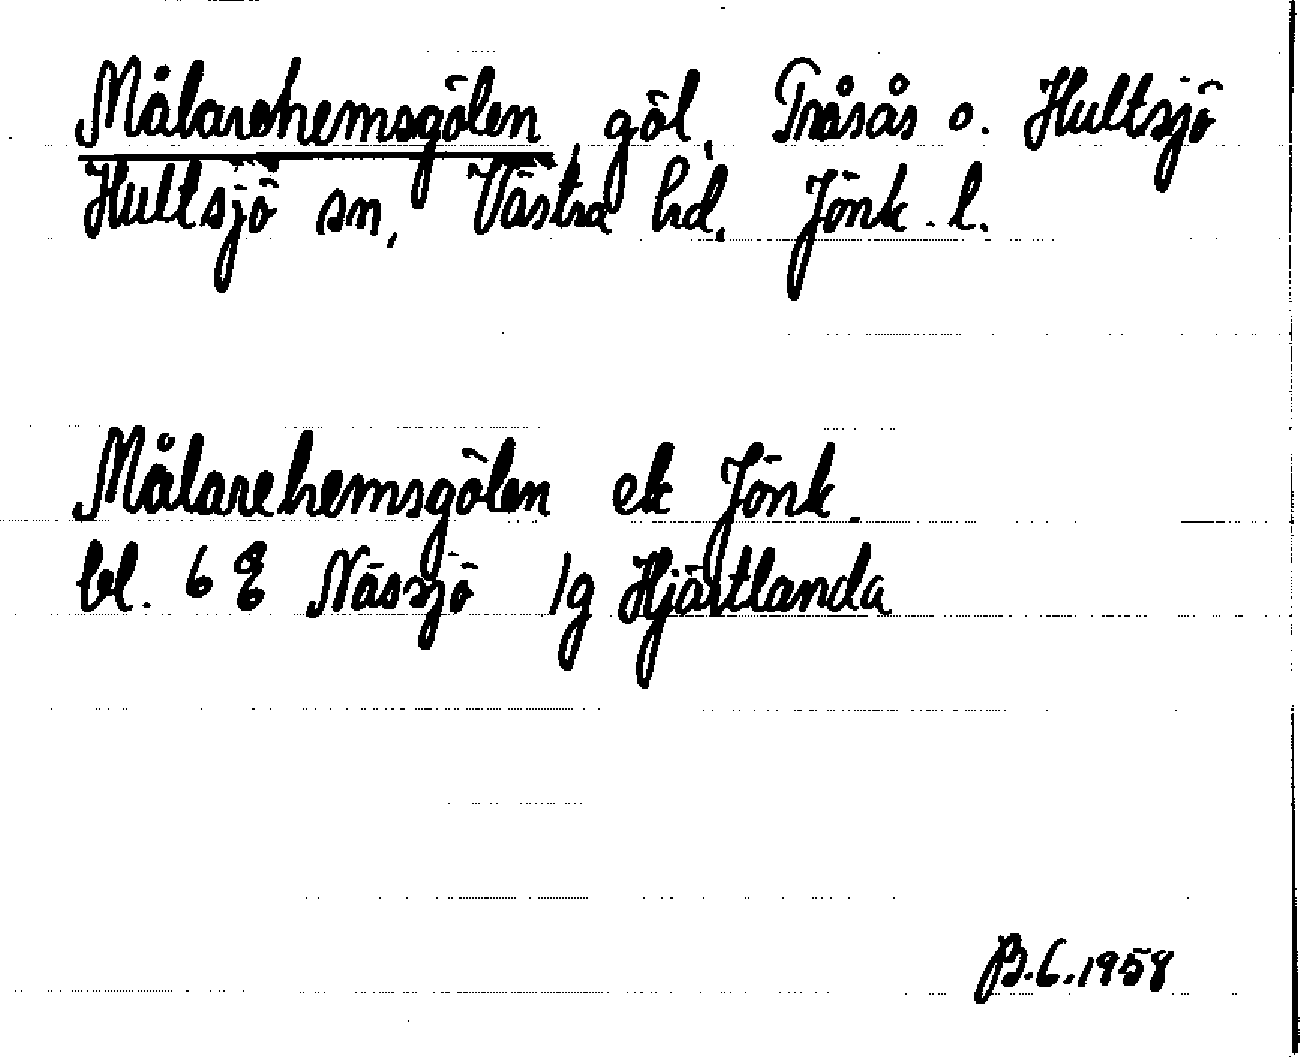 Målarehemsgölen göl, Träsås o. Hultsjö
Hultsjö sn, Västra hd, Jönk. l.
Målarehemsgölen ek Jönk.
bl. 6 E Nässjö 1g Hjärtlanda
B.L.1958